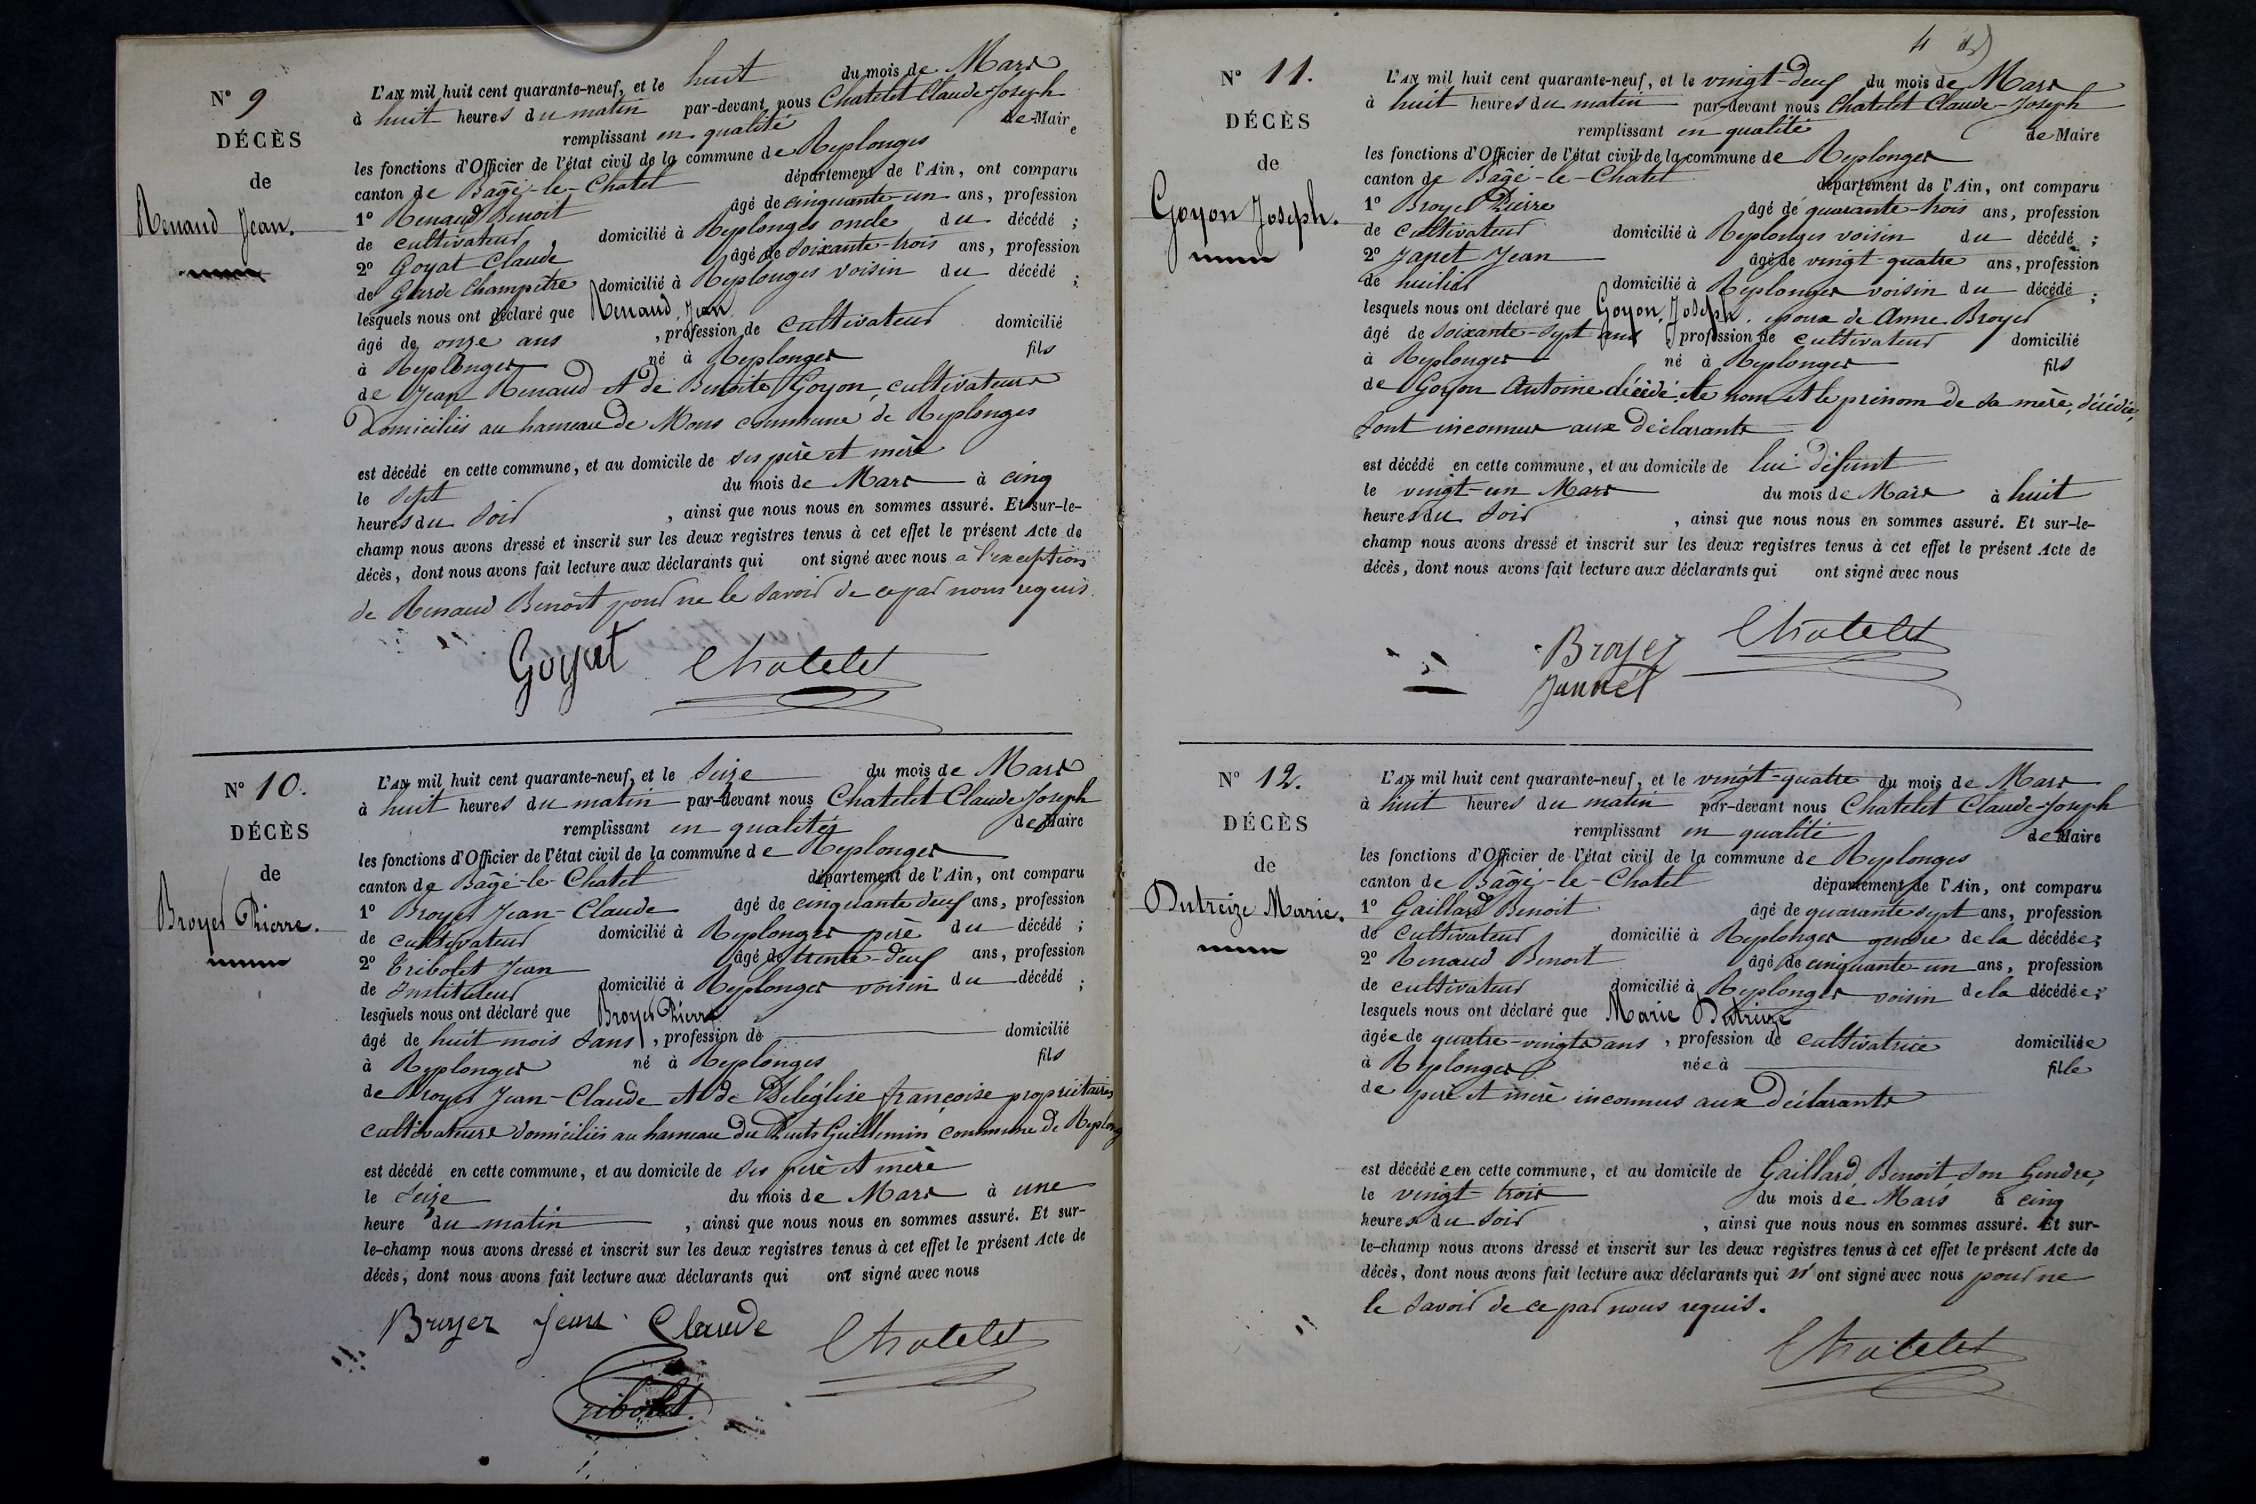 N° 9
DÉCÈS
de
Renaud Jean.
L'AN mil huit cent quarante-neuf, et le huit du mois de Mars
à huit heures du matin par-devant nous Chatelet Claude-Joseph
remplissant en qualité de Maire
les fonctions d'Officier de l'état civil de la commune de Replonges
canton de Bâgé-le-Chatel département de l'Ain, ont comparu
1° Renaud Benoit âgé de cinquante-un ans, profession
de cultivateur, domicilié à Replonges oncle du décédé ;
2° Goyat Claude âgé de soixante-trois ans, profession
de Garde Champêtre domicilié à Replonges voisin du décédé ;
lesquels nous ont déclaré que Renaud Jean
âgé de onze ans, profession de cultivateur domicilié
à Replonges né à Replonges fils
de Jean Renaud et de Benoite Goyon, cultivateurs
Domiciliés au hameau de Mons commune de Replonges
est décédé en cette commune, et au domicile de ses père et mère
le sept du mois de Mars à cinq
heures du soir, ainsi que nous nous en sommes assuré. Et sur-le-
champ nous avons dressé et inscrit sur les deux registres tenus à cet effet le présent Acte de
décès, dont nous avons fait lecture aux déclarants qui ont signé avec nous a l'exception
de Renaud Benoit pour ne le savoir de ce par nous requis.
Goyat Chatelet
N° 10.
DÉCÈS
de
Broyer Pierre.
L'AN mil huit cent quarante-neuf, et le seize du mois de Mars
à huit heures du matin par-devant nous Chatelet Claude Joseph
remplissant en qualité de Maire
les fonctions d'Officier de l'état civil de la commune de Replonges
canton de Bâgé-le-Chatel département de l'Ain, ont comparu
1° Broyer Jean-Claude âgé de cinquante deux ans, profession
de cultivateur domicilié à Replonges père du décédé ;
2° Tribolet Jean âgé de trente-deux ans, profession
de Instituteur domicilié à Replonges voisin du décédé ;
lesquels nous ont déclaré que Broyer Pierre
âgé de huit mois sans, profession de domicilié
à Replonges né à Replonges fils
de Broyer Jean-Claude et de Deléglise françoise propriétaires
cultivateurs domiciliés au hameau du Puits Guillemin commune de Replong
est décédé en cette commune, et au domicile de ses père et mère
le seize du mois de Mars à une
heure du matin, ainsi que nous nous en sommes assuré. Et sur-
le-champ nous avons dressé et inscrit sur les deux registres tenus à cet effet le présent Acte de
décès, dont nous avons fait lecture aux déclarants qui ont signé avec nous
Broyer Jean Claude Chatelet
Tribolet.
N° 11.
DÉCÈS
de
Goyon Joseph.
L'AN mil huit cent quarante-neuf, et le vingt-deux du mois de Mars
à huit heures du matin par-devant nous Chatelet Claude-Joseph
remplissant en qualité de Maire
les fonctions d'Officier de l'état civil de la commune de Replonges
canton de Bâgé-le-Chatel département de l'Ain, ont comparu
1° Broyer Pierre âgé de quarante-trois ans, profession
de cultivateur domicilié à Replonges voisin du décédé ;
2° Janet Jean âgé de vingt-quatre ans, profession
de huilier domicilié à Replonges voisin du décédé ;
lesquels nous ont déclaré que Goyon Joseph. époux de Anne Broyer
âgé de soixante-sept ans, profession de cultivateur domicilié
à Replonges né à Replonges fils
de Goyon Antoine décédé, et le nom et le prénom de sa mère, décédée,
sont inconnus aux déclarants
est décédé en cette commune, et au domicile de lui défunt
le vingt-un Mars du mois de Mars à huit
heures du soir, ainsi que nous nous en sommes assuré. Et sur-le-
champ nous avons dressé et inscrit sur les deux registres tenus à cet effet le présent Acte de
décès, dont nous avons fait lecture aux déclarants qui ont signé avec nous
Broyer Chatelet
Jannet
N° 12.
DÉCÈS
de
Dutreize Marie.
L'AN mil huit cent quarante-neuf, et le vingt-quatre du mois de Mars
à huit heures du matin par-devant nous Chatelet Claude-Joseph
remplissant en qualité de Maire
les fonctions d'Officier de l'état civil de la commune de Replonges
canton de Bâgé-le-Chatel département de l'Ain, ont comparu
1° Gaillard Benoit âgé de quarante-sept ans, profession
de cultivateur domicilié à Replonges gendre de la décédée ;
2° Renaud Benoit âgé de cinquante-un ans, profession
de cultivateur domicilié à Replonges voisin de la décédée ;
lesquels nous ont déclaré que Marie Dutreize
âgée de quatre-vingts ans, profession de cultivatrice domiciliée
à Replonges née à fille
de père et mère inconnus aux déclarants
est décédée en cette commune, et au domicile de Gaillard Benoit, son Gendre,
le vingt-trois du mois de Mars à cinq
heures du soir, ainsi que nous nous en sommes assuré. Et sur-
le-champ nous avons dressé et inscrit sur les deux registres tenus à cet effet le présent Acte de
décès, dont nous avons fait lecture aux déclarants qui n'ont signé avec nous pour ne
le savoir de ce par nous requis.
Chatelet